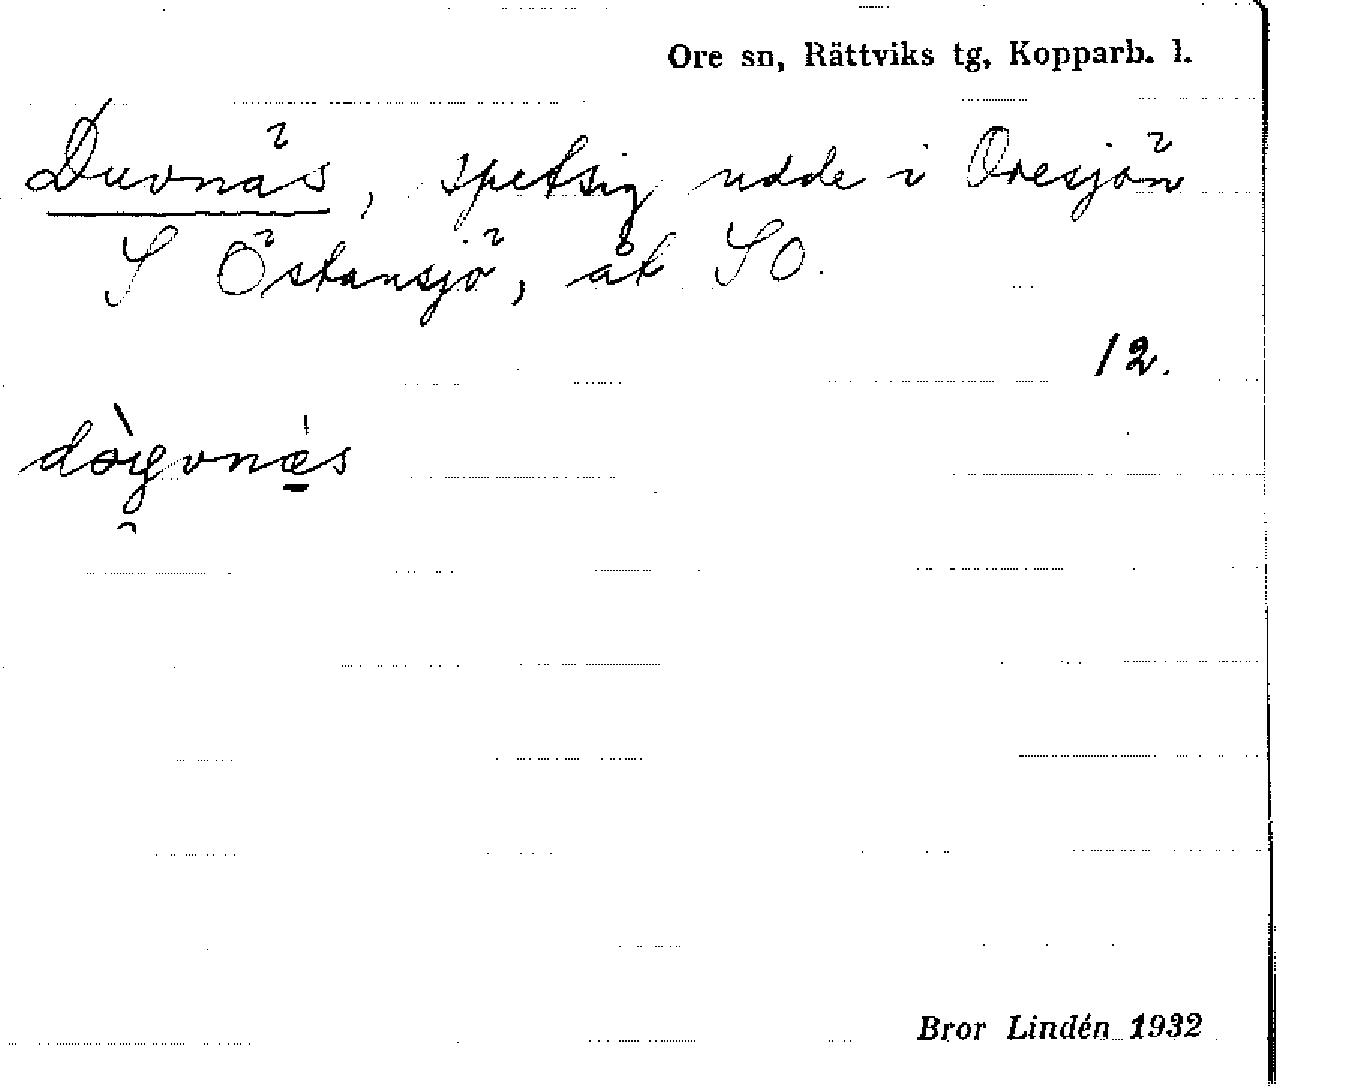 Ore sn, Rättviks tg, Kopparb. l.
Duvnäs, spetsig udde i Oresjön
S Östansjö, åt SO.
12.
Bror Lindén 1932